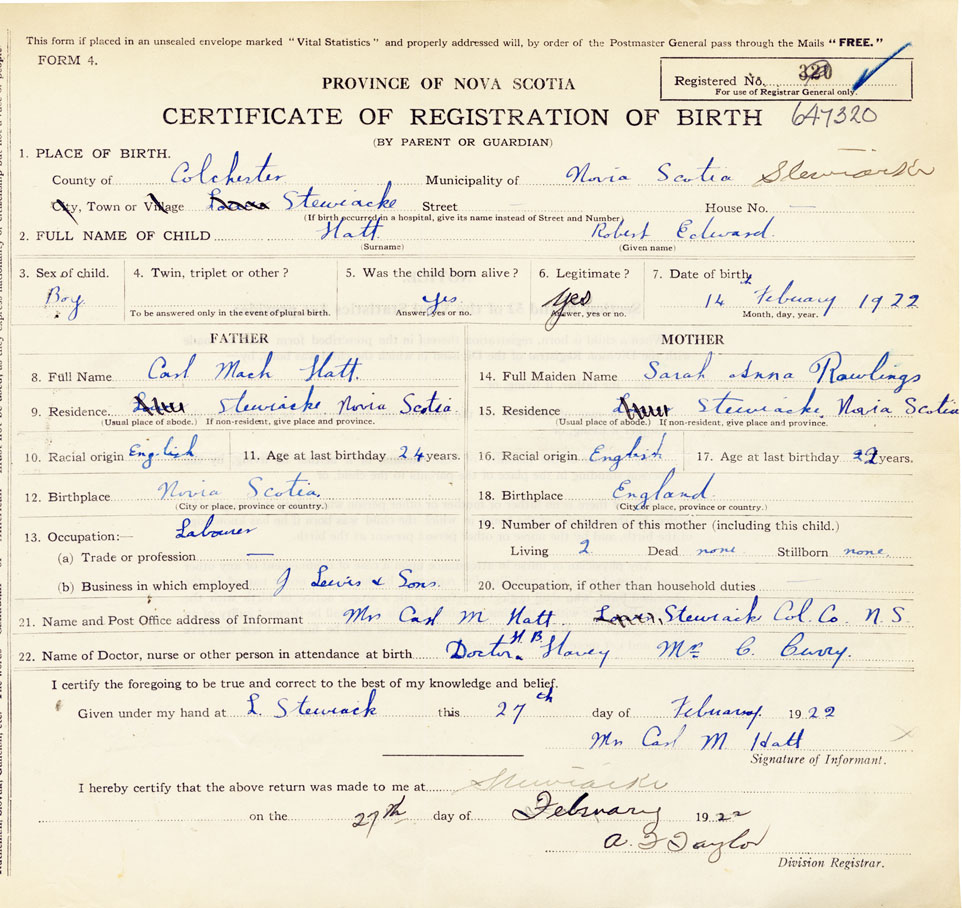 This form if placed in an unsealed envelope marked "Vital Statistics" and properly addressed will, by order of the Postmaster General pass through the Mails "FREE."
FORM 4.
Registered No. 320
For use of Registrar General only.
PROVINCE OF NOVA SCOTIA
CERTIFICATE OF REGISTRATION OF BIRTH 647320
(BY PARENT OR GUARDIAN)
1. PLACE OF BIRTH.
County of Colchester Municipality of Novia Scotia Stewiacke
City, Town or Village Stewiacke Street House No. —
(If birth occurred in a hospital, give its name instead of Street and Number)
2. FULL NAME OF CHILD Hatt Robert Edward.
(Surname) (Given name)
3. Sex of child. 4. Twin, triplet or other? 5. Was the child born alive? 6. Legitimate? 7. Date of birth
Boy yes yes 14th February 1922
To be answered only in the event of plural birth. Answer, yes or no. Answer, yes or no. Month, day, year.
FATHER MOTHER
8. Full Name Carl Mack Hatt. 14. Full Maiden Name Sarah Anna Rawlings
9. Residence Stewiacke Novia Scotia 15. Residence Stewiacke, Novia Scotia
(Usual place of abode.) If non-resident, give place and province. (Usual place of abode.) If non-resident, give place and province.
10. Racial origin English 11. Age at last birthday 24 years. 16. Racial origin English 17. Age at last birthday 22 years.
12. Birthplace Novia Scotia. 18. Birthplace England.
(City or place, province or country.) (City or place, province or country.)
13. Occupation:— Labourer 19. Number of children of this mother (including this child.)
(a) Trade or profession — Living 2 Dead none Stillborn none.
(b) Business in which employed J Lewis & Sons. 20. Occupation, if other than household duties —
21. Name and Post Office address of Informant Mrs Carl M Hatt Stewiack Col. Co. N. S
22. Name of Doctor, nurse or other person in attendance at birth Doctor H. B. Havey Mrs C. Curry.
I certify the foregoing to be true and correct to the best of my knowledge and belief.
Given under my hand at L. Stewiack this 27th day of February. 1922
Mrs Carl M Hatt
Signature of Informant.
I hereby certify that the above return was made to me at Stewiacke
on the 27th day of February 1922
A. F Taylor
Division Registrar.